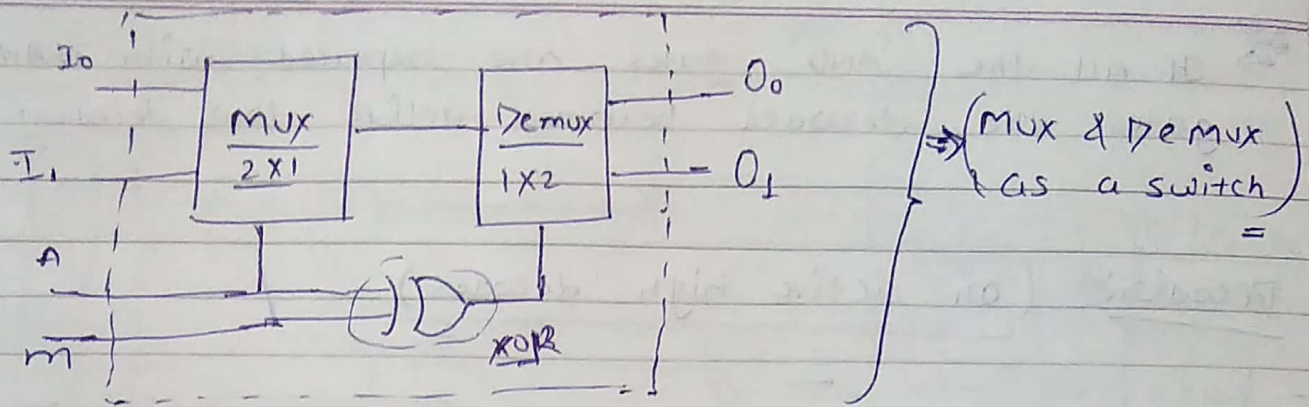 I0
I1
A
m
MUX
2X1
Demux
1X2
O0
O1
XOR
⇒ (MUX & Demux
as a switch)
=